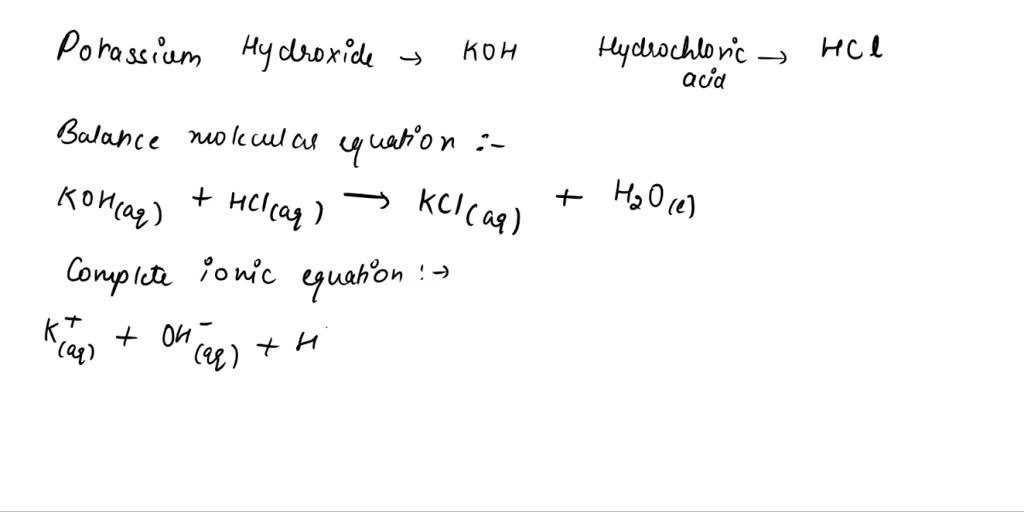 Potassium Hydroxide → KOH Hydrochloric acid → HCl
Balance molecular equation :-
KOH(aq) + HCl(aq) → KCl(aq) + H₂O(l)
Complete ionic equation :→
K⁺(aq) + OH⁻(aq) + H